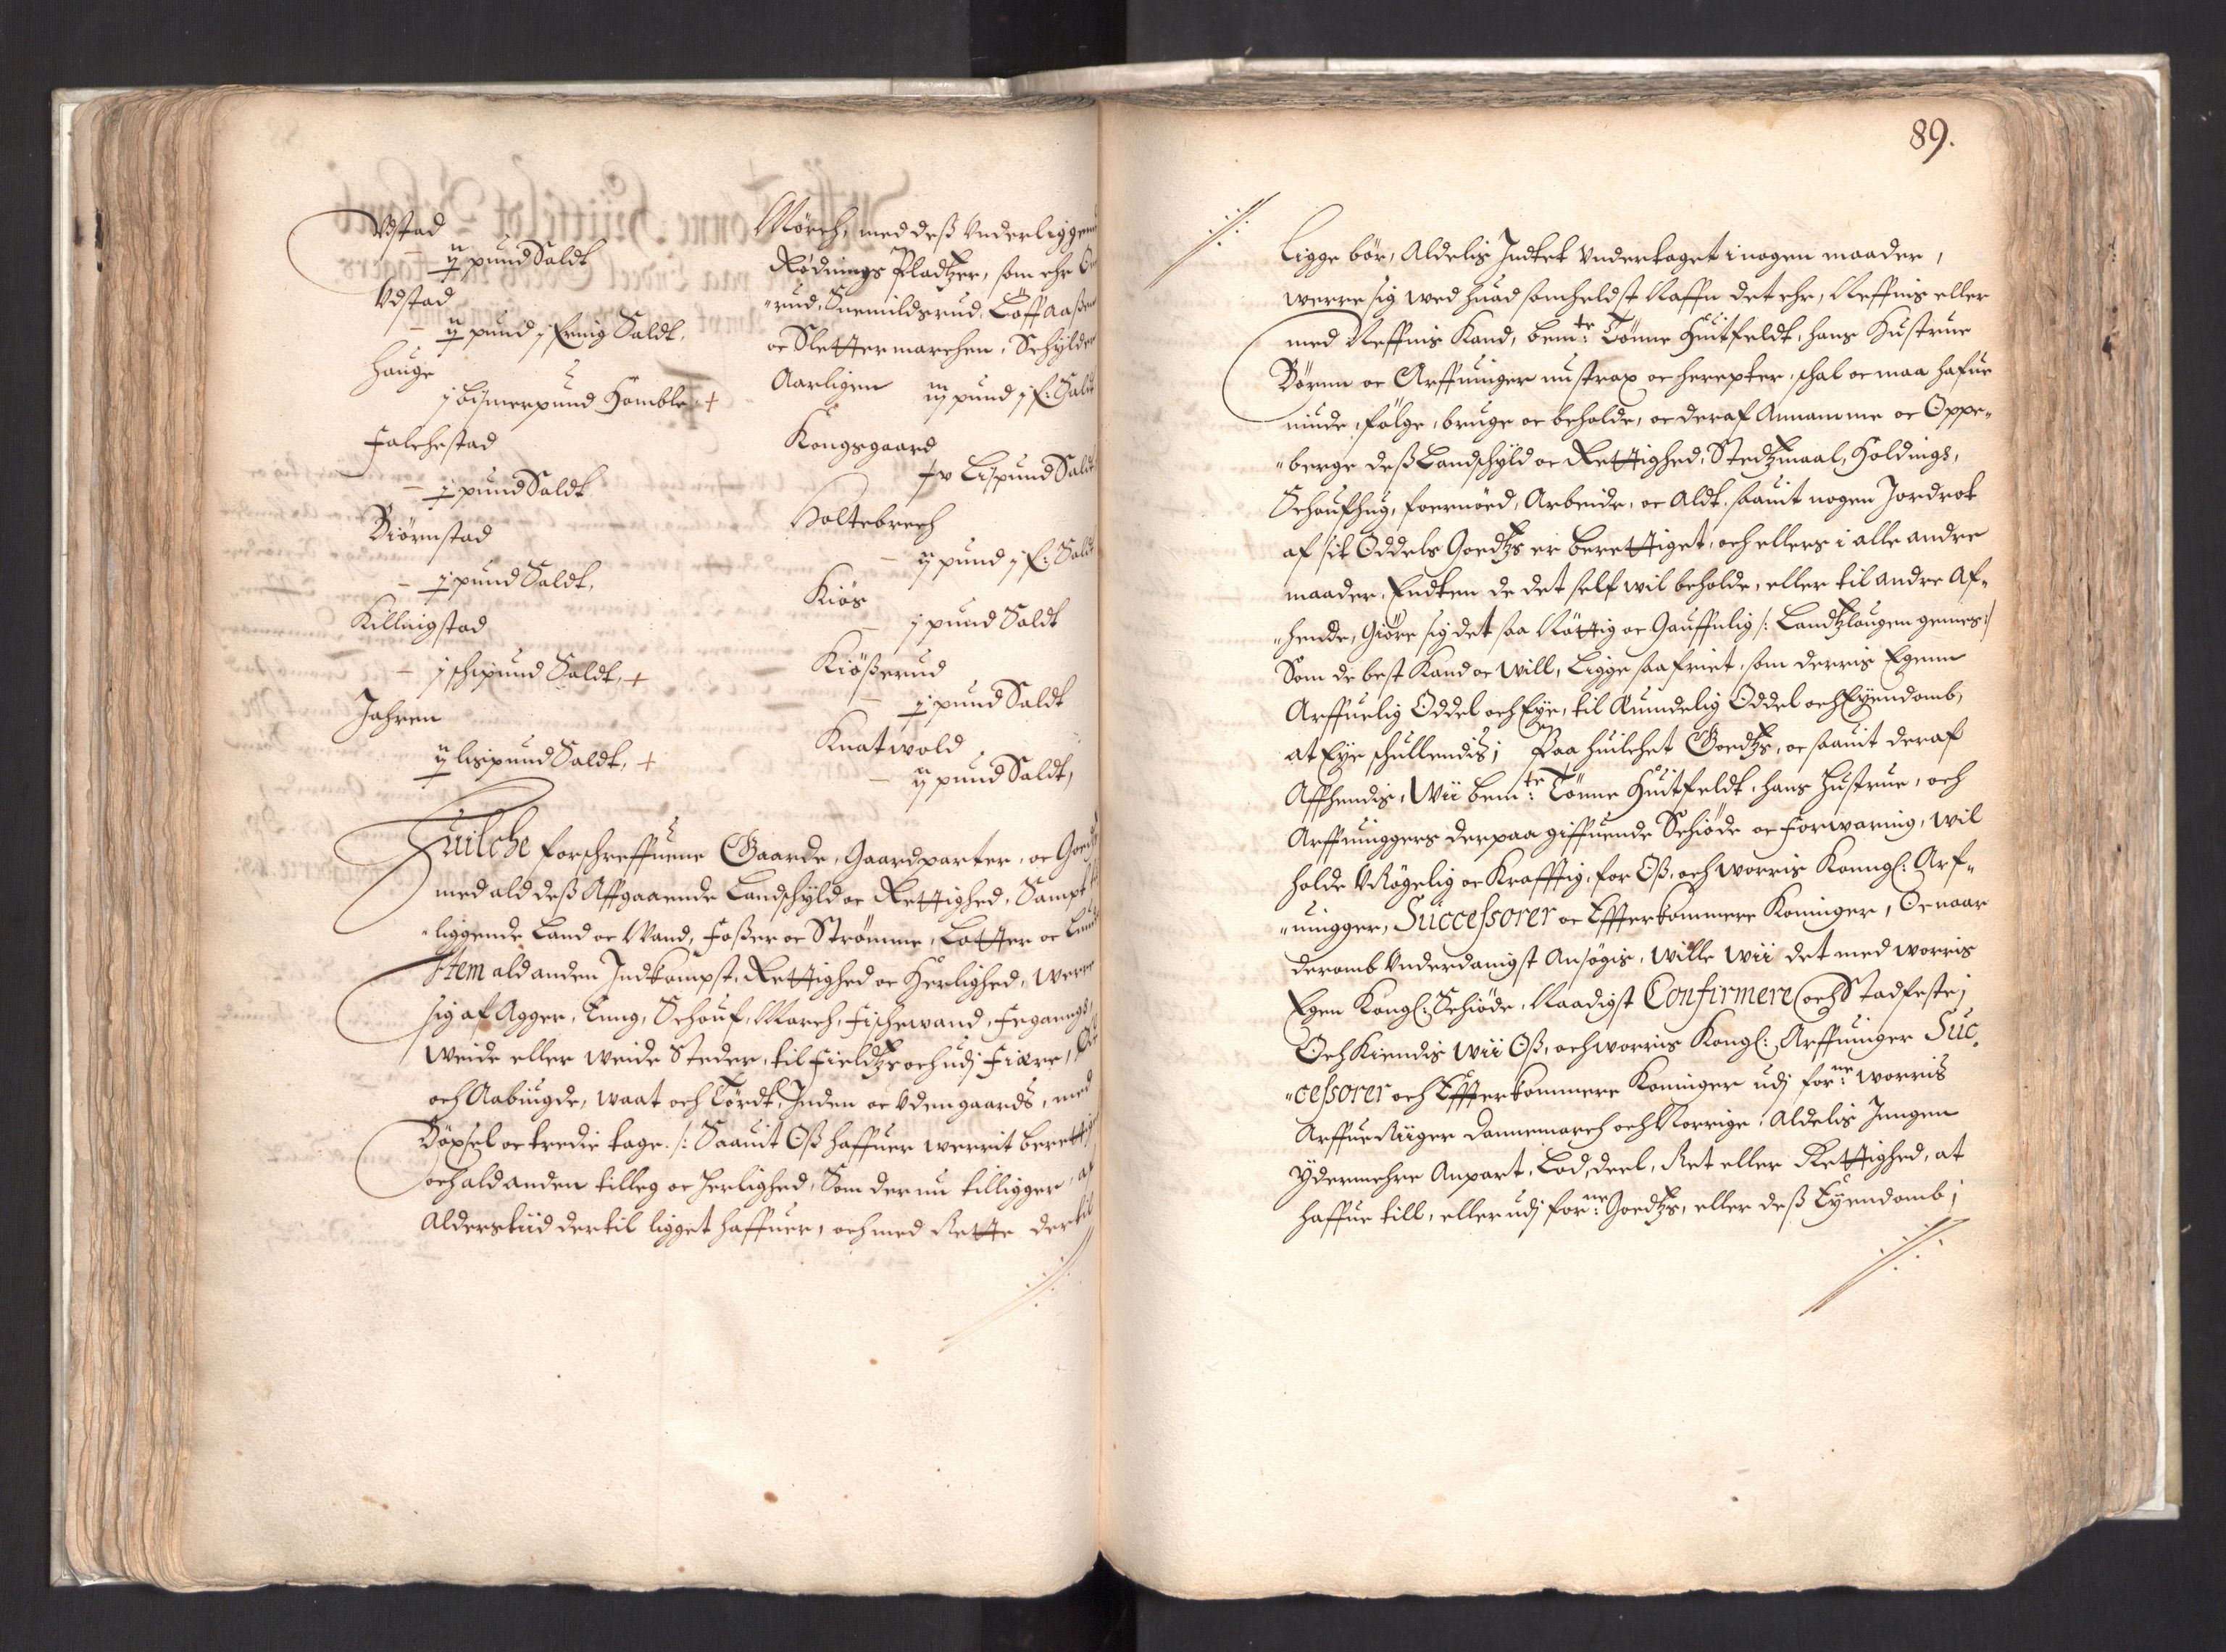 Vestad
ij pund Saldt
Vestad
ij pund j fenig Saldt,
Hauge
j bismerpund Homble, +
Falchestad
j pund Saldt
Biörnstad
j pund Saldt,
Killingstad
j schipund Saldt, +
Jahren
ij lispund Saldt, +
Mörch, med deß Vnderligge
Rödnings Pladtzer, som ehr
rud, Snemildsrud, Löffaaßen
oc Slettermarchen, Schylder
Aarligen iij pund j f: Saldt
Kongsgaard
Lispund Saldt
Holtebrech
ij pund j f: Saldt
Kiös
j pund Saldt
Kiößerud
j pund Saldt
Knatwold
ij pund Saldt,
Huilche forschreffuene Gaarde, Gaardparter, oc
med ald deß Affgaaende Landschyld oc Rettighed, Sampt
"liggende Land oc Wand, Foßer oc Strömme, Lotter oc
Item ald anden Indkompst, Rettighed oc Herlighed, werre
sig af Agger, Eng, Schouf, March, Fischewand, Fegangs,
Weide eller Weide Steder, til Fieldtz och udj Fiære,
och Aabingde, waat och Tördt, Inden oc Vdengaards, med
Böxsel oc tredie tage /: Saauit Oß haffuer werrit beret
och ald anden tilleg oc Herlighed, Som der nu tilligger, af
Alderstiid dertil ligget haffuer, och med Rette dertil
89.
Ligge bör, Aldelis Indtet Vndertaget i nogen maader,
werre sig wed huad somheldst Naffn det ehr, Neffnis eller
med Neffnis Kand, bemte: Tönne Huitfeldt, hans Hustrue
Börnn oc Arffuinger nu strax oc herepter, schal oc maa hafue
niude, fölge, bruge oc beholde, oc deraf Annamme oc Oppe"
"berge deß Landschyld oc Rettighed, Stedtzmaal, Holdings,
Schoufhug, foernöed, Arbeide, oc Aldt, saauit nogen Jordrot
af sit Oddels Goedtzs er berettiget, och ellers i alle andre
maader, Endten de det self wil beholde, eller til andre Af"
"hende, Giöre sig det saa Nöttig oc Gauffnlig /: Landtzlougen gemes:/
Som de best Kand oc will, Ligge saa friet, som derris Egenn
Arffuelig Oddel och Eye, til Euindelig Oddel och Eyendomb,
at Eye schullendis; Paa huilchet Goedtzs, oc saauit deraf
Affhendis, Wii bemte: Tönne Huitfeldt, hans Hustrue, och
Arffuinggers derpaa giffuende Schiöde oc Forwaring, wil
holde Vbögelig oc Krafftig, for Oß, och worris Konngl: Arf"
"uingger, Successorer oc Effterkommere Koninger, Oc naar
deromb Vnderdanigst Ansögis, wille Wii det med worris
Egen Kongl: Schiöde, Naadigst Confirmere och Stadfeste;
Och Kiendis Wii Oß, och worris Kongl: Arffuinger Suc"
"cessorer och Effterkommere Koninger udj forne: worris
Arffue Riiger Dannemarch och Norrige, Aldelis Inngen
ydermehre Anpart, Lod, deel, Ret eller Rettighed, at
haffue till, eller udj forne: Goedtzs, eller deß Eyendomb;